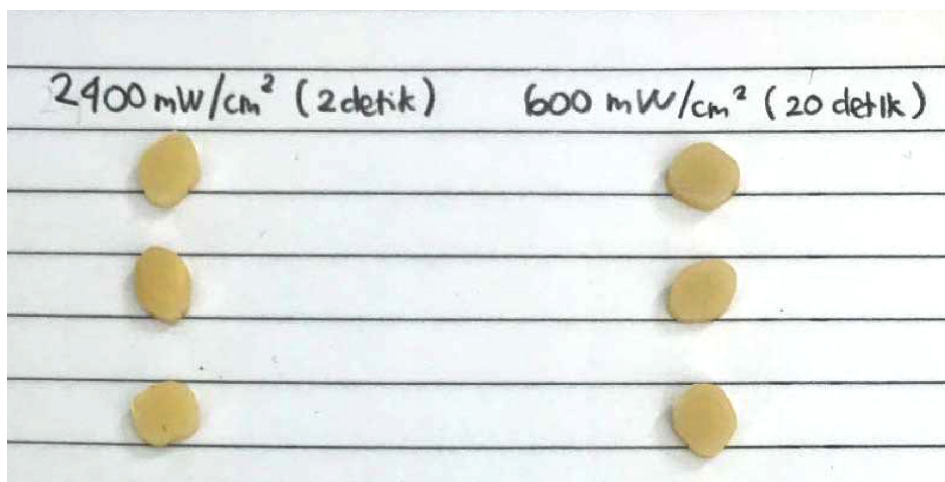 2400 mW/cm² (2 detik) 600 mW/cm² (20 detik)